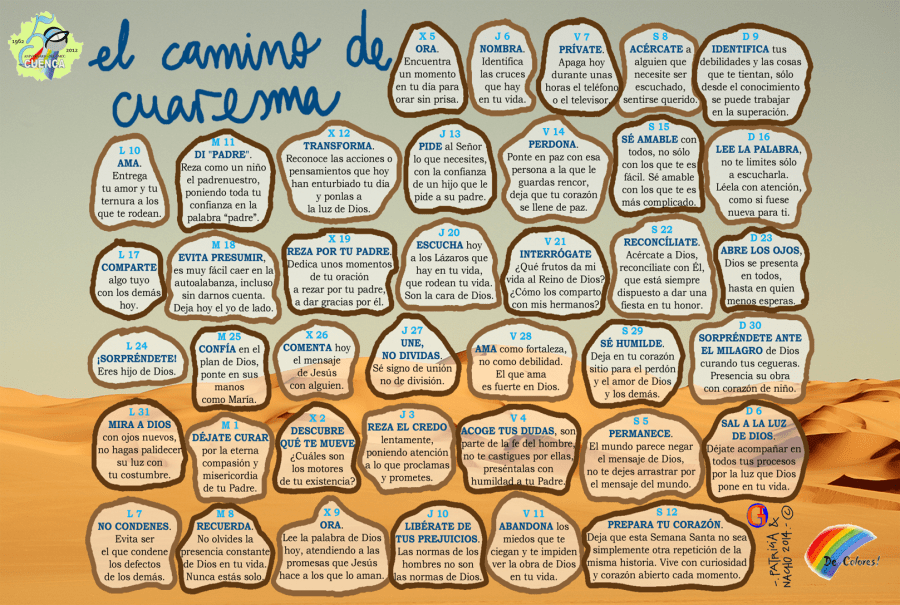 1962
2012
CUENCA
el camino de
cuaresma
X 5
ORA.
Encuentra
un momento
en tu día para
orar sin prisa.
J 6
NOMBRA.
Identifica
las cruces
que hay
en tu vida.
V 7
PRÍVATE.
Apaga hoy
durante unas
horas el teléfono
o el televisor.
S 8
ACÉRCATE a
alguien que
necesite ser
escuchado,
sentirse querido.
D 9
IDENTIFICA tus
debilidades y las cosas
que te tientan, sólo
desde el conocimiento
se puede trabajar
en la superación.
L 10
AMA.
Entrega
tu amor y tu
ternura a los
que te rodean.
M 11
DI "PADRE".
Reza como un niño
el padrenuestro,
poniendo toda tu
confianza en la
palabra “padre”.
X 12
TRANSFORMA.
Reconoce las acciones o
pensamientos que hoy
han enturbiado tu día
y ponlas a
la luz de Dios.
J 13
PIDE al Señor
lo que necesites,
con la confianza
de un hijo que le
pide a su padre.
V 14
PERDONA.
Ponte en paz con esa
persona a la que le
guardas rencor,
deja que tu corazón
se llene de paz.
S 15
SÉ AMABLE con
todos, no sólo
con los que te es
fácil. Sé amable
con los que te es
más complicado.
D 16
LEE LA PALABRA,
no te limites sólo
a escucharla.
Léela con atención,
como si fuese
nueva para ti.
L 17
COMPARTE
algo tuyo
con los demás
hoy.
M 18
EVITA PRESUMIR,
es muy fácil caer en la
autoalabanza, incluso
sin darnos cuenta.
Deja hoy el yo de lado.
X 19
REZA POR TU PADRE.
Dedica unos momentos
de tu oración
a rezar por tu padre,
a dar gracias por él.
J 20
ESCUCHA hoy
a los Lázaros que
hay en tu vida,
que rodean tu vida.
Son la cara de Dios.
V 21
INTERRÓGATE
¿Qué frutos da mi
vida al Reino de Dios?
¿Cómo los comparto
con mis hermanos?
S 22
RECONCÍLIATE.
Acércate a Dios,
reconcíliate con Él,
que está siempre
dispuesto a dar una
fiesta en tu honor.
D 23
ABRE LOS OJOS,
Dios se presenta
en todos,
hasta en quien
menos esperas.
L 24
¡SORPRÉNDETE!
Eres hijo de Dios.
M 25
CONFÍA en el
plan de Dios,
ponte en sus
manos
como María.
X 26
COMENTA hoy
el mensaje
de Jesús
con alguien.
J 27
UNE,
NO DIVIDAS.
Sé signo de unión
no de división.
V 28
AMA como fortaleza,
no como debilidad.
El que ama
es fuerte en Dios.
S 29
SÉ HUMILDE.
Deja en tu corazón
sitio para el perdón
y el amor de Dios
y los demás.
D 30
SORPRÉNDETE ANTE
EL MILAGRO de Dios
curando tus cegueras.
Presencia su obra
con corazón de niño.
L 31
MIRA A DIOS
con ojos nuevos,
no hagas palidecer
su luz con
tu costumbre.
M 1
DÉJATE CURAR
por la eterna
compasión y
misericordia
de tu Padre.
X 2
DESCUBRE
QUÉ TE MUEVE.
¿Cuáles son
los motores
de tu existencia?
J 3
REZA EL CREDO
lentamente,
poniendo atención
a lo que proclamas
y prometes.
V 4
ACOGE TUS DUDAS, son
parte de la fe del hombre,
no te castigues por ellas,
preséntalas con
humildad a tu Padre.
S 5
PERMANECE.
El mundo parece negar
el mensaje de Dios,
no te dejes arrastrar por
el mensaje del mundo.
D 6
SAL A LA LUZ
DE DIOS.
Déjate acompañar en
todos tus procesos
por la luz que Dios
pone en tu vida.
L 7
NO CONDENES.
Evita ser
el que condene
los defectos
de los demás.
M 8
RECUERDA.
No olvides la
presencia constante
de Dios en tu vida.
Nunca estás solo.
X 9
ORA.
Lee la palabra de Dios
hoy, atendiendo a las
promesas que Jesús
hace a los que lo aman.
J 10
LIBÉRATE DE
TUS PREJUICIOS.
Las normas de los
hombres no son
las normas de Dios.
V 11
ABANDONA los
miedos que te
ciegan y te impiden
ver la obra de Dios
en tu vida.
S 12
PREPARA TU CORAZÓN.
Deja que esta Semana Santa no sea
simplemente otra repetición de la
misma historia. Vive con curiosidad
y corazón abierto cada momento.
- PATRICIA &
NACHO 2014 - ©
De Colores!